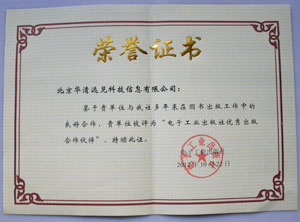 荣誉证书
北京华清远见科技信息有限公司：
鉴于贵单位与我社多年来在图书出版工作中的
良好合作，贵单位被评为“电子工业出版社优秀出版
合作伙伴”，特颁此证。